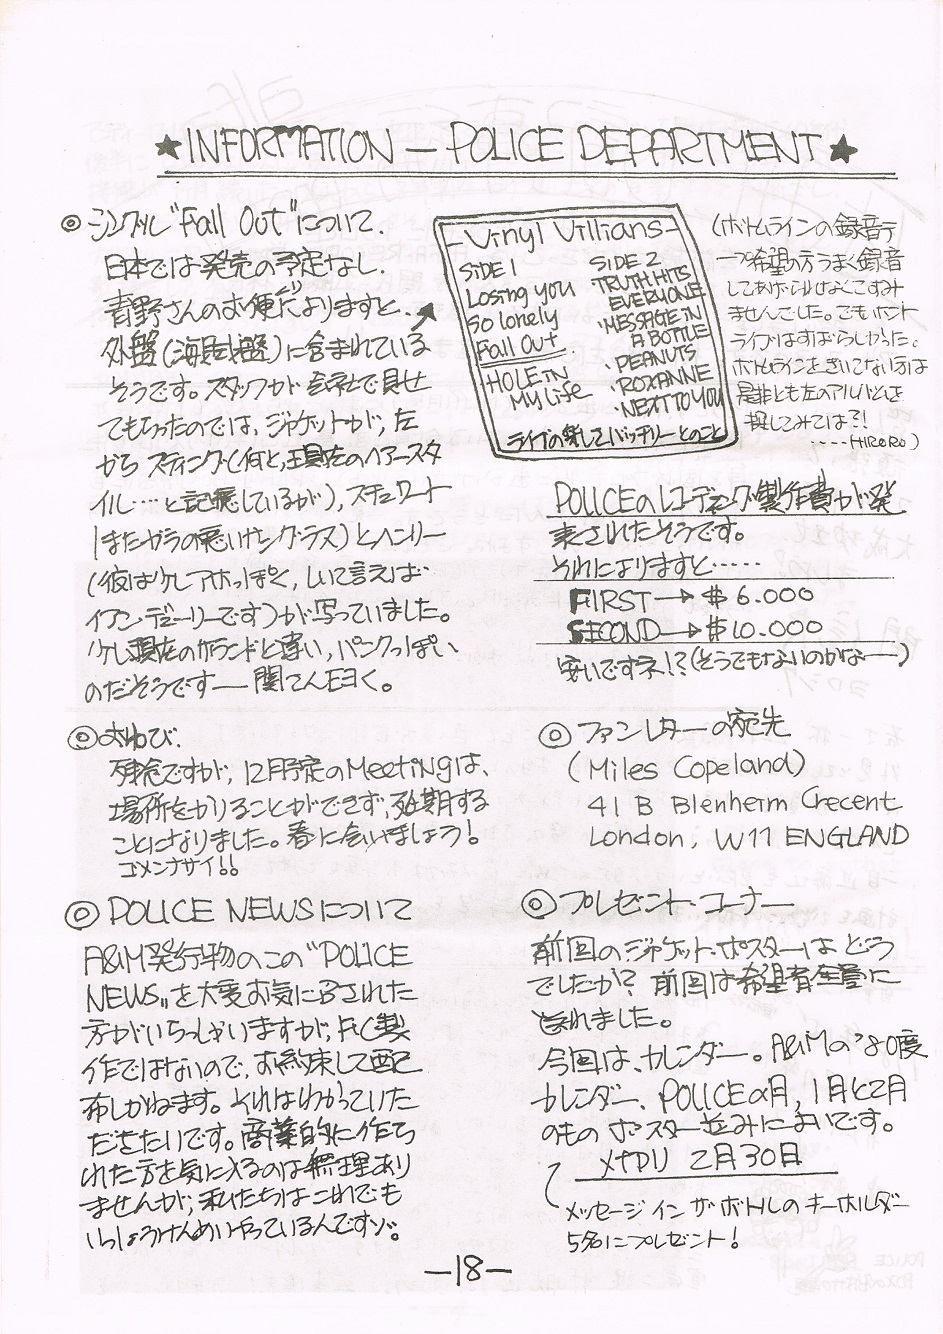 ★INFORMATION — POLICE DEPARTMENT★
◎ シングル"Fall Out"について.
日本では発売の予定なし.
青野さんのお便によりますと、
外盤(海賊盤)に含まれている
そうです。スタッフが会社で見せ
てもらったのでは、ジャケットが、左
から スティング(何と、現在のヘアースタ
イル…‥と記憶しているが)、スチュワート
(またガラの悪いサングラス)とヘンリー
(彼は 的っぽく, しいて言えば
イアン・デューリーです)が写っていました。
現在のサウンドと違い, パンクっぽい
のだそうです — 関てん曰く。
-Vinyl Villians-
SIDE 1
Losing you
So lonely
Fall Out
HOLE IN
My life
SIDE 2
・TRUTH HITS
EVERYONE
・MESSAGE IN
A BOTTLE
・PEANUTS
・ROXANNE
・NEXT TO YOU
ライブの様してバッチリーとのこと
(ボトムラインの録音テ
ープ希望の方うまく録音
してあげられなくてすみ
ませんでした。でもホント
ライブはすばらしかった。
ボトムラインをきいてない方は
是非とも左のアルバムを
捜してみては?!
‥‥‥HIRORO)
POLICEのレコーディング製作費が発
表されたそうです。
それによりますと‥‥‥
FIRST→$6.000
SECOND→$10.000
安いですネ!?(そうでもないのかなー)
◎おわび.
残念ですが, 12月予定のMeetingは、
場所をかりることができず, 延期する
ことになりました。春に会いましょう!
ゴメンナサイ!!
◎ ファンレターの宛先
(Miles Copeland)
41 B Blenherm Crecent
London, W11 ENGLAND
◎ POLICE NEWSについて
A&M発行物のこの"POLICE
NEWS"を大変お気に召された
方がいらっしゃいますが, FC製
作ではないので, お約束して配
布しかねます。それはわかっていた
だきたいです。商業的に作ら
れた方を気に入るのは無理あり
ませんが, 私たちはこれでも
いっしょうけんめいやっているんですゾ。
◎ プレゼント・コーナー
前回のジャケット・ポスターは どう
でしたか? 前回は希望者全員に
送れました。
今回は、カレンダー。A&Mの'80度
カレンダー、POLICEの月, 1月と2月
のもの ポスター並みにおいです。
〆切り 2月30日
メッセージ イン ザ ボトルの キーホルダー
5名にプレゼント!
—18—